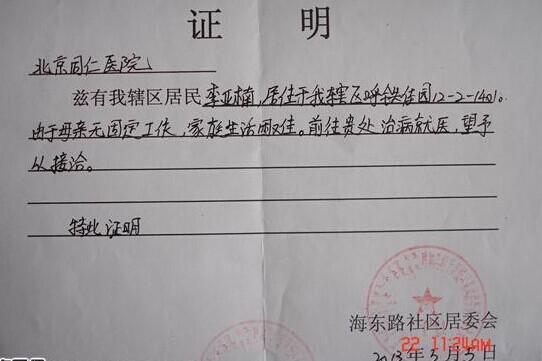 证 明
北京同仁医院
兹有我辖区居民李亚楠,居住于我辖区呼铁佳园12-2-1401。
由于母亲无固定工作,家庭生活困难。前往贵处治病就医,望予
以接洽。
特此证明
海东路社区居委会
2013年3月5日
22 11:24AM